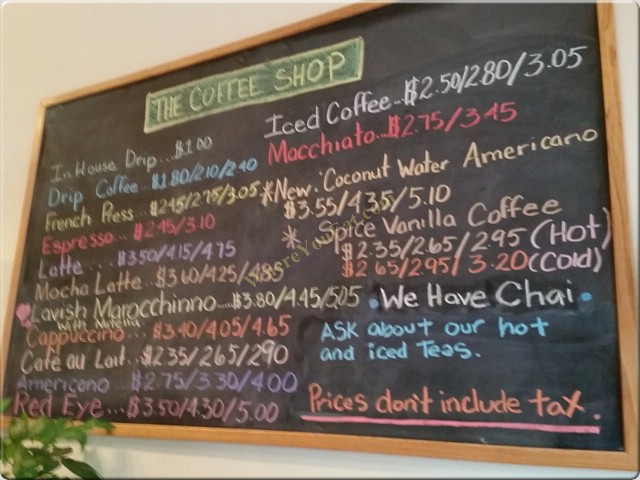 THE COFFEE SHOP
In House Drip...$1.00
Drip Coffee...$1.80/2.10/2.40
French Press...$2.45/2.75/3.05
Espresso...$2.45/3.10
Latte....$3.50/4.15/4.75
Mocha Latte...$3.60/4.25/4.85
Lavish Marocchinno...$3.80/4.45/5.05
with Nutella
Cappuccino...$3.40/4.05/4.65
Café au Lait...$2.35/2.65/2.90
Americano...$2.75/3.30/4.00
Red Eye...$3.50/4.30/5.00
Iced Coffee...$2.50/2.80/3.05
Macchiato...$2.75/3.45
*New: Coconut Water Americano
$3.55/4.35/5.10
* Spice Vanilla Coffee
$2.35/2.65/2.95 (Hot)
$2.65/2.95/3.20 (Cold)
• We Have Chai •
ASK about our hot
and iced Teas.
Prices don't include tax.